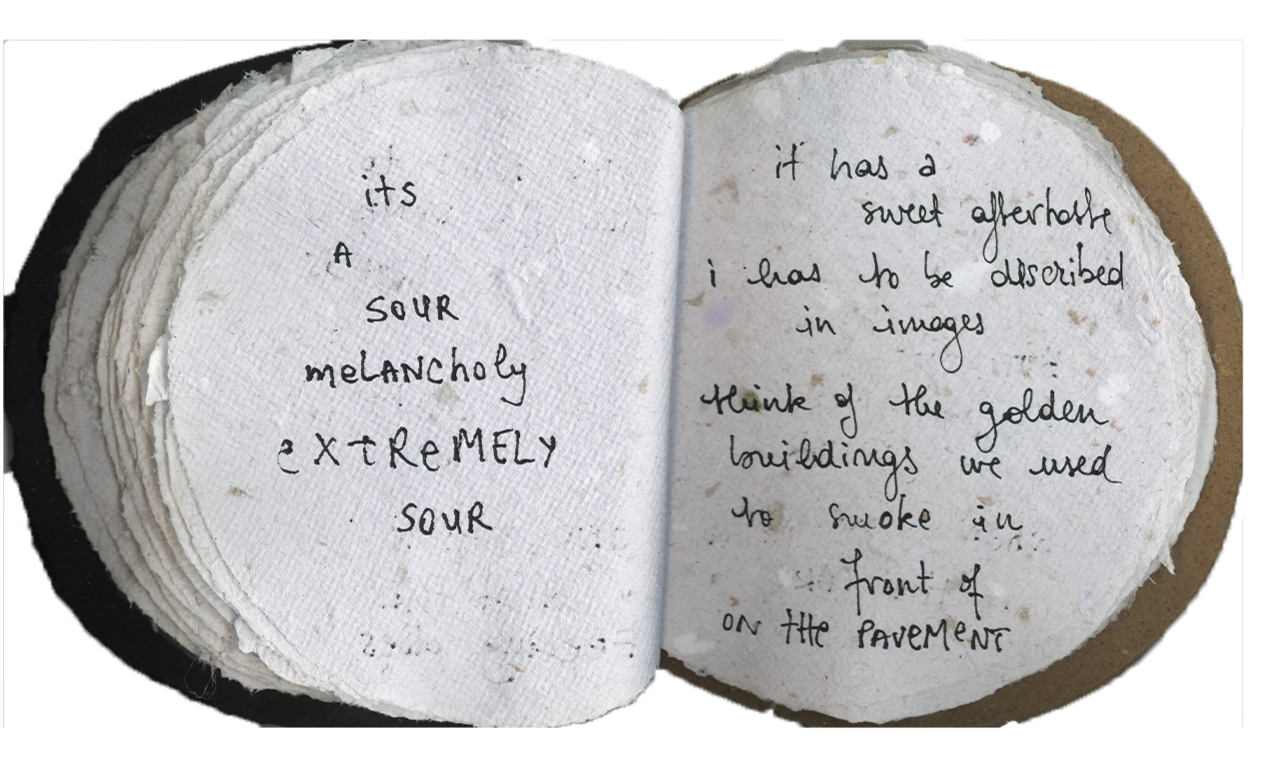 its
A
SOUR
meLANCholy
eXtReMELY
SOUR
it has a
sweet aftertaste
i has to be discribed
in images
think of the golden
buildings we used
to smoke in
front of
ON tHe PAVEMeNT